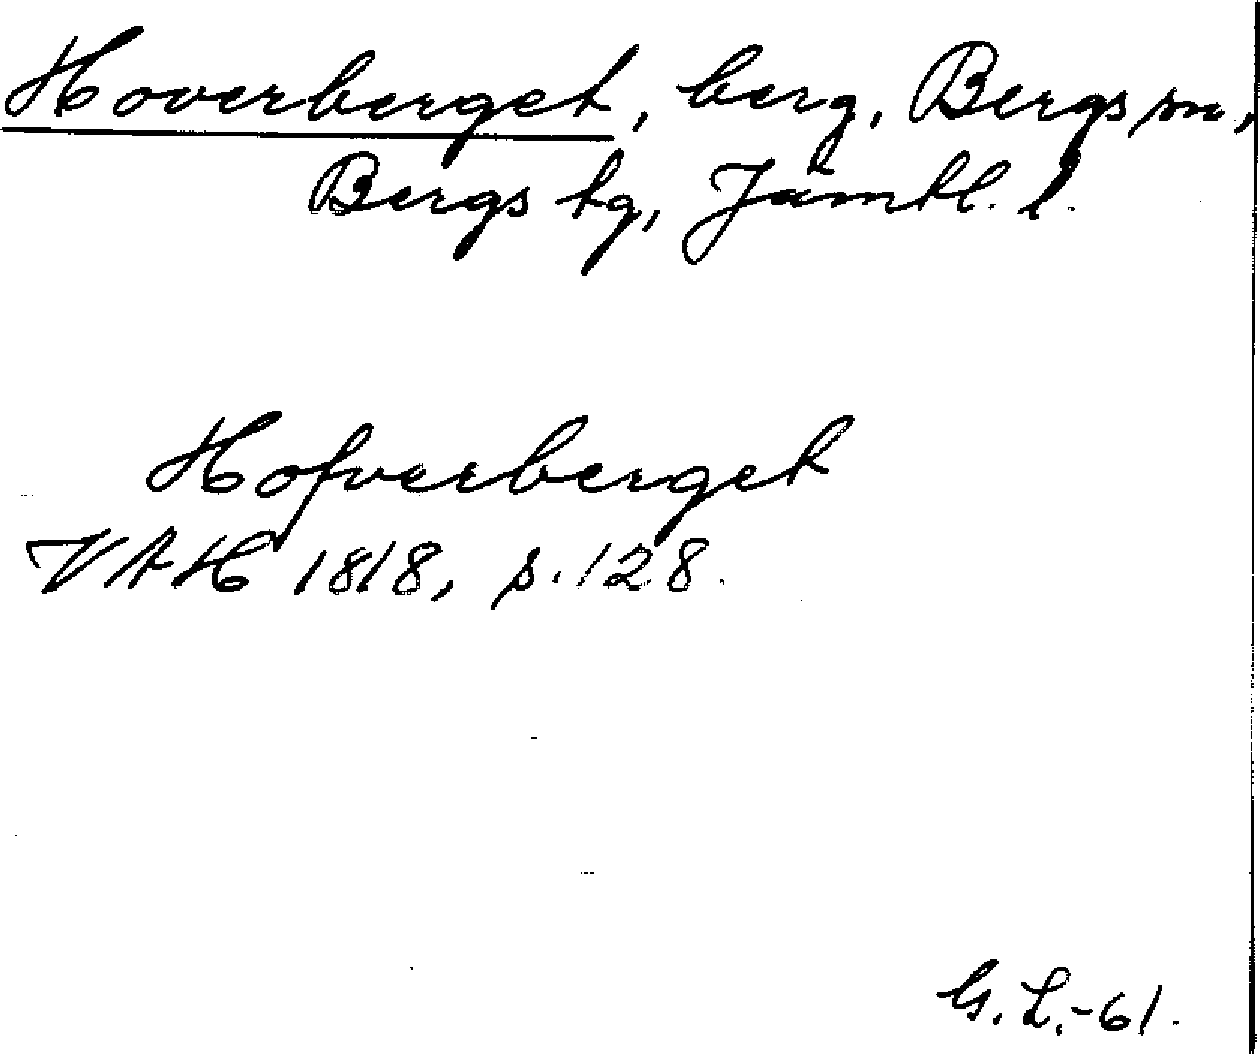 Hoverberget, berg, Bergs sn,
Bergs tg, Jämtl. l.
Hofverberget
VAH 1818, s. 128.
G. L. -61.